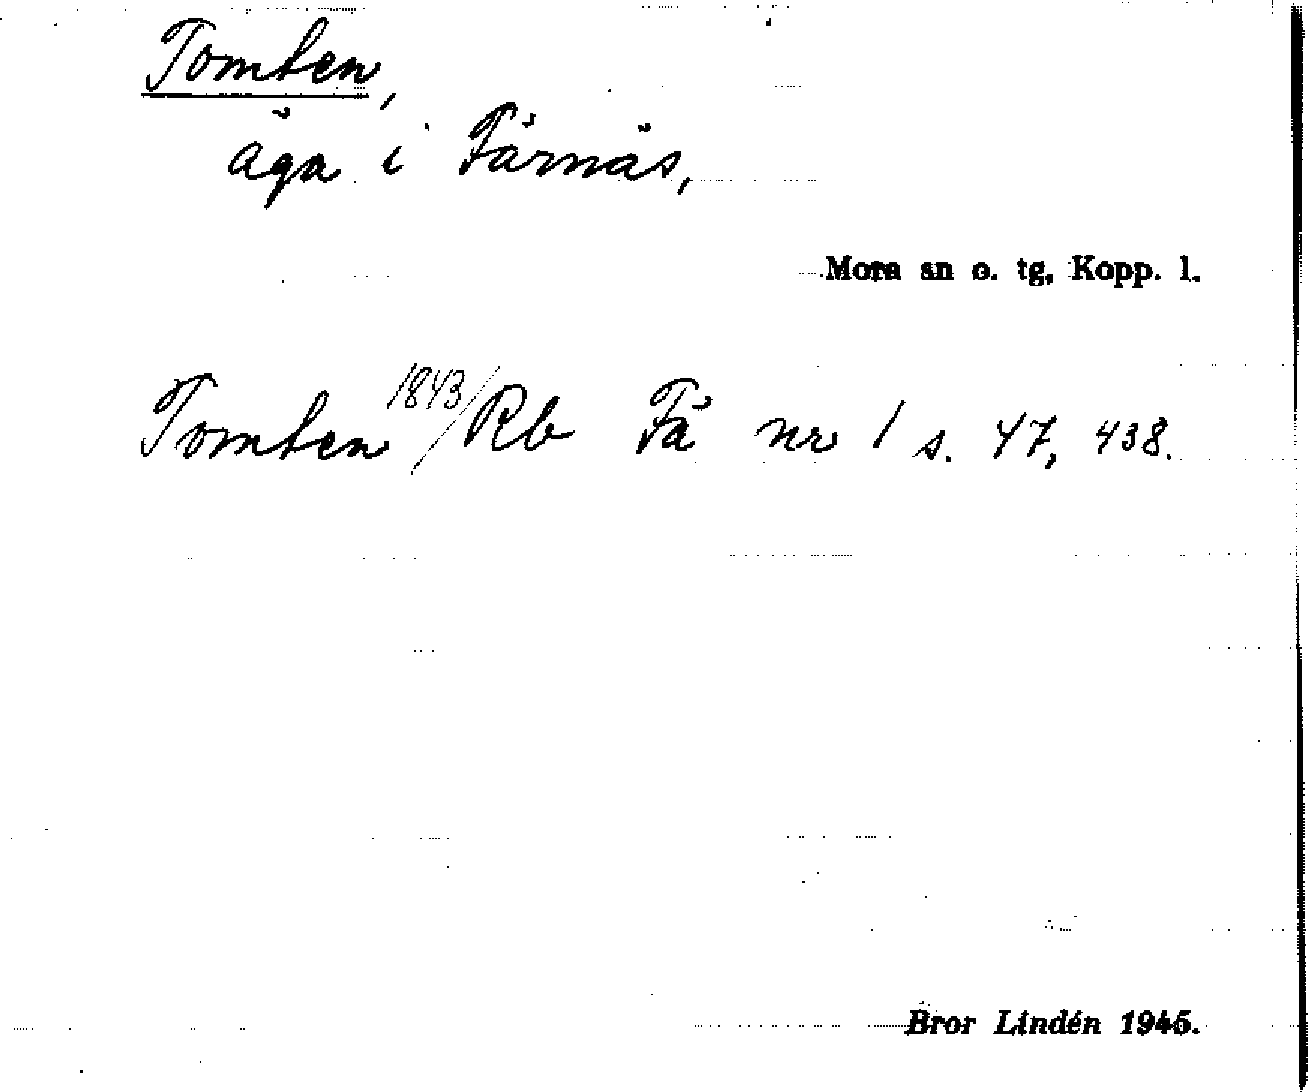 Tomten,
äga i Färnäs,
Mora sn o. tg, Kopp. l.
Tomten 1843/Rb Fä nr 1 s. 47, 438.
Bror Lindén 1945.